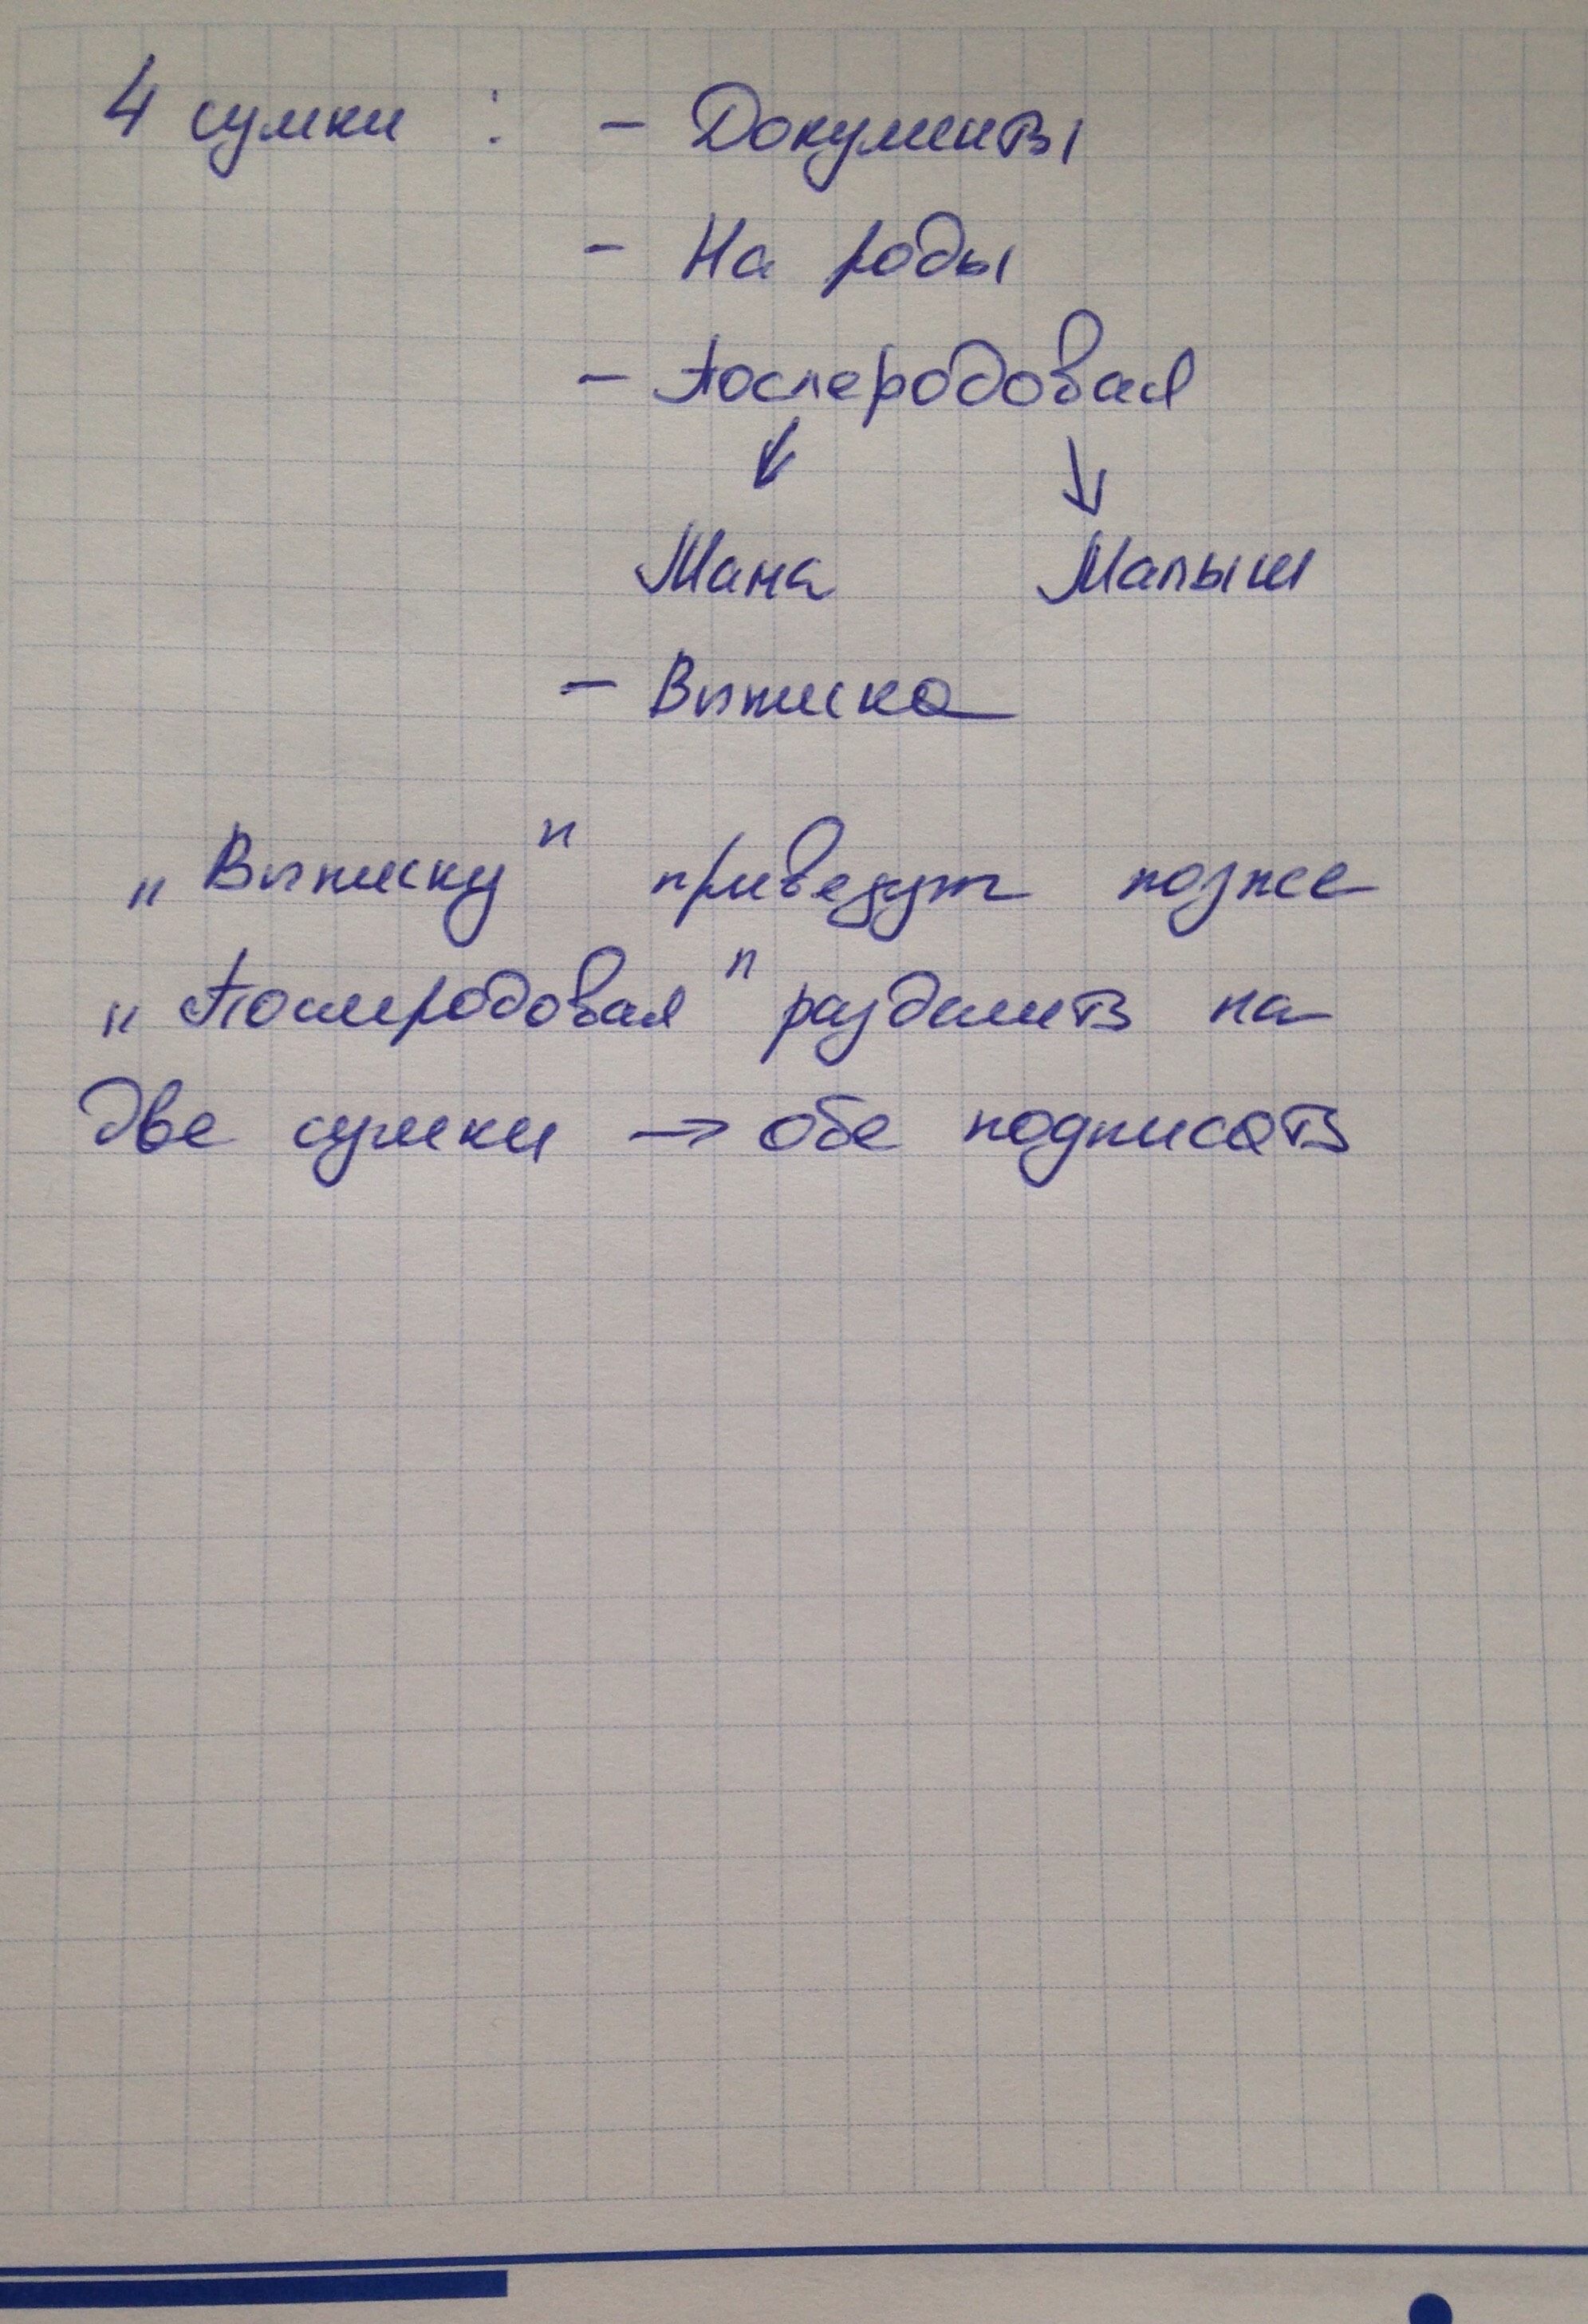 4 сумки : - Документы
- На роды
- Послеродовая
↓ ↓
Мама Малыш
- Выписка
„Выписку" привезут позже
„Послеродовая" разделить на
две сумки → обе подписать